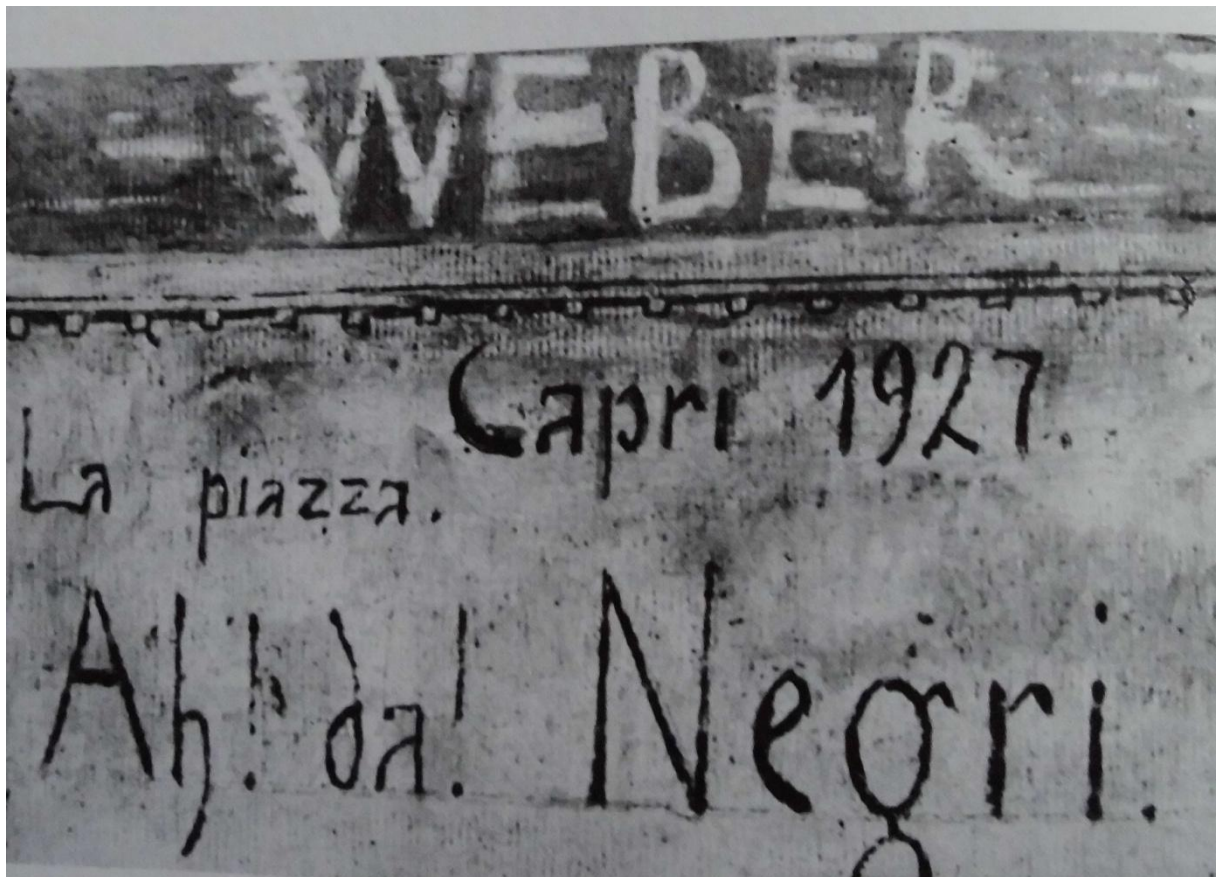 WEBER
Capri 1927.
La piazza.
Ah! da! Negri.